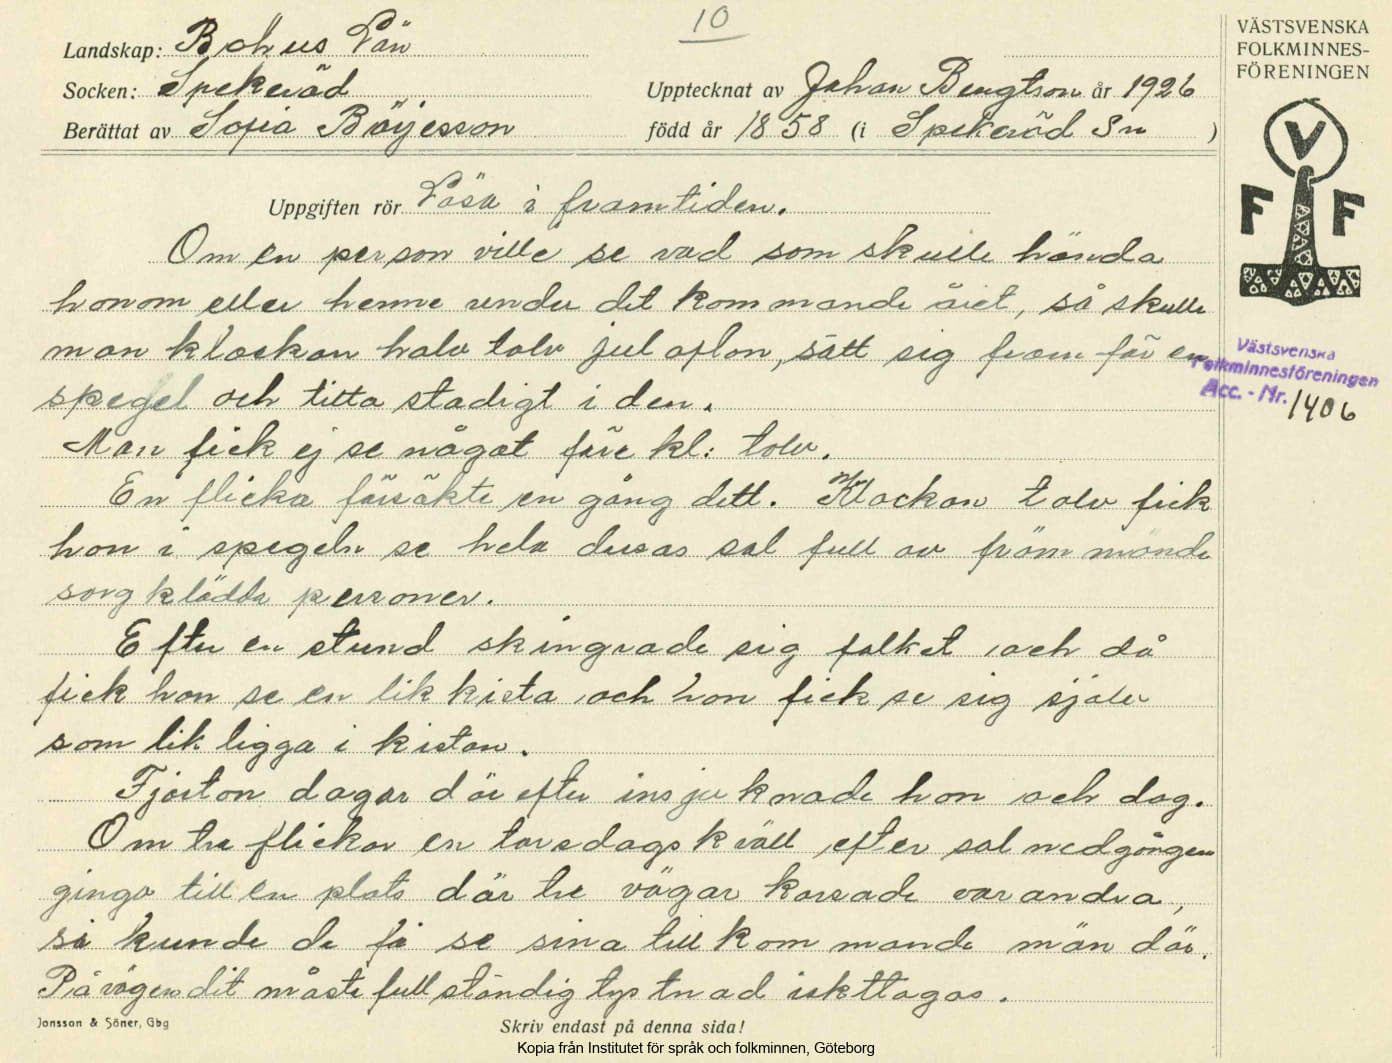 10
Landskap: Bohus Län
Socken: Spekeröd
Upptecknat av Johan Bengtson år 1926
Berättat av Sofia Börjesson
född år 1858 (i Spekeröd Sn )
VÄSTSVENSKA
FOLKMINNES-
FÖRENINGEN
V
F F
Uppgiften rör Läsa i framtiden.
Om en person ville se vad som skulle hända
honom eller henne under det kommande året, så skulle
man klockan halv tolv jul afton, sätt sig fram för en
spegel och titta stadigt i den.
Man fick ej se något före kl: tolv.
En flicka försökte en gång dett. Klockan tolv fick
hon i spegeln se hela deras sal full av främmande
sorgklädda personer.
Efter en stund skingrade sig folket och då
fick hon se en likkista och hon fick se sig själv
som lik ligga i kistan.
Fjorton dagar där efter insjuknade hon och dog.
Om tre flickor en torsdagskväll efter solnedgången
gingo till en plats där tre vägar korsade varandra,
så kunde de få se sina tillkommande män där.
På vägen dit måste fullständig tystnad iakttagas.
Västsvenska
Folkminnesföreningen
Acc. - Nr. 1406
Jonsson & Söner, Gbg
Skriv endast på denna sida!
Kopia från Institutet för språk och folkminnen, Göteborg